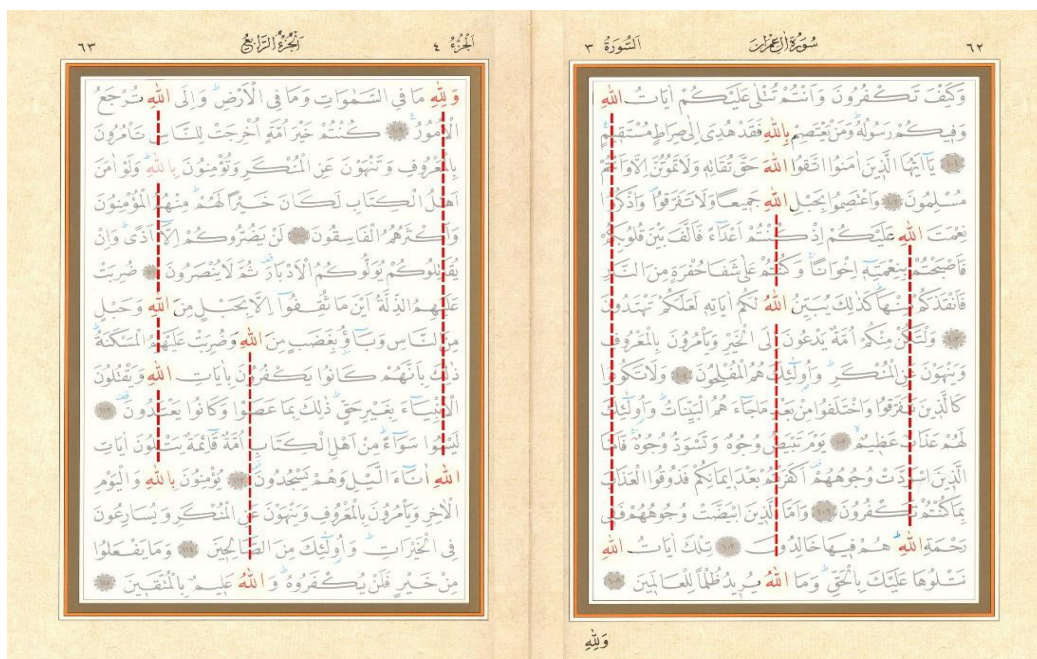 ٦٢ سُورَةُ اٰلِ عِمْرٰنَ اَلسُّورَةُ ٣
وَكَيْفَ تَكْفُرُونَ وَاَنْتُمْ تُتْلٰى عَلَيْكُمْ اٰيَاتُ اللّٰهِ
وَفِيكُمْ رَسُولُهُ وَمَنْ يَعْتَصِمْ بِاللّٰهِ فَقَدْ هُدِىَ اِلٰى صِرَاطٍ مُسْتَقِيمٍ
يَٓا اَيُّهَا الَّذِينَ اٰمَنُوا اتَّقُوا اللّٰهَ حَقَّ تُقَاتِهِ وَلَا تَمُوتُنَّ اِلَّا وَاَنْتُمْ
مُسْلِمُونَ وَاعْتَصِمُوا بِحَبْلِ اللّٰهِ جَمِيعًا وَلَا تَفَرَّقُوا وَاذْكُرُوا
نِعْمَتَ اللّٰهِ عَلَيْكُمْ اِذْ كُنْتُمْ اَعْدَٓاءً فَاَلَّفَ بَيْنَ قُلُوبِكُمْ
فَاَصْبَحْتُمْ بِنِعْمَتِهٖٓ اِخْوَانًا وَكُنْتُمْ عَلٰى شَفَا حُفْرَةٍ مِنَ النَّارِ
فَاَنْقَذَكُمْ مِنْهَا كَذٰلِكَ يُبَيِّنُ اللّٰهُ لَكُمْ اٰيَاتِهِ لَعَلَّكُمْ تَهْتَدُونَ
وَلْتَكُنْ مِنْكُمْ اُمَّةٌ يَدْعُونَ اِلَى الْخَيْرِ وَيَأْمُرُونَ بِالْمَعْرُوفِ
وَيَنْهَوْنَ عَنِ الْمُنْكَرِ وَاُولٰٓئِكَ هُمُ الْمُفْلِحُونَ وَلَا تَكُونُوا
كَالَّذِينَ تَفَرَّقُوا وَاخْتَلَفُوا مِنْ بَعْدِ مَا جَٓاءَهُمُ الْبَيِّنَاتُ وَاُولٰٓئِكَ
لَهُمْ عَذَابٌ عَظِيمٌ يَوْمَ تَبْيَضُّ وُجُوهٌ وَتَسْوَدُّ وُجُوهٌ فَاَمَّا
الَّذِينَ اسْوَدَّتْ وُجُوهُهُمْ اَكَفَرْتُمْ بَعْدَ اِيمَانِكُمْ فَذُوقُوا الْعَذَابَ
بِمَا كُنْتُمْ تَكْفُرُونَ وَاَمَّا الَّذِينَ ابْيَضَّتْ وُجُوهُهُمْ فَفِى
رَحْمَةِ اللّٰهِ هُمْ فِيهَا خَالِدُونَ تِلْكَ اٰيَاتُ اللّٰهِ
نَتْلُوهَا عَلَيْكَ بِالْحَقِّ وَمَا اللّٰهُ يُرِيدُ ظُلْمًا لِلْعَالَمِينَ
وَلِلّٰهِ
اَلْجُزْءُ ٤ اَلْجُزْءُ الرَّابِعُ ٦٣
وَلِلّٰهِ مَا فِى السَّمٰوَاتِ وَمَا فِى الْاَرْضِ وَاِلَى اللّٰهِ تُرْجَعُ
الْاُمُورُ كُنْتُمْ خَيْرَ اُمَّةٍ اُخْرِجَتْ لِلنَّاسِ تَأْمُرُونَ
بِالْمَعْرُوفِ وَتَنْهَوْنَ عَنِ الْمُنْكَرِ وَتُؤْمِنُونَ بِاللّٰهِ وَلَوْ اٰمَنَ
اَهْلُ الْكِتَابِ لَكَانَ خَيْرًا لَهُمْ مِنْهُمُ الْمُؤْمِنُونَ
وَاَكْثَرُهُمُ الْفَاسِقُونَ لَنْ يَضُرُّوكُمْ اِلَّٓا اَذًى وَاِنْ
يُقَاتِلُوكُمْ يُوَلُّوكُمُ الْاَدْبَارَ ثُمَّ لَا يُنْصَرُونَ ضُرِبَتْ
عَلَيْهِمُ الذِّلَّةُ اَيْنَ مَا ثُقِفُٓوا اِلَّا بِحَبْلٍ مِنَ اللّٰهِ وَحَبْلٍ
مِنَ النَّاسِ وَبَٓاؤُ بِغَضَبٍ مِنَ اللّٰهِ وَضُرِبَتْ عَلَيْهِمُ الْمَسْكَنَةُ
ذٰلِكَ بِاَنَّهُمْ كَانُوا يَكْفُرُونَ بِاٰيَاتِ اللّٰهِ وَيَقْتُلُونَ
الْاَنْبِيَٓاءَ بِغَيْرِ حَقٍّ ذٰلِكَ بِمَا عَصَوْا وَكَانُوا يَعْتَدُونَ
لَيْسُوا سَوَٓاءً مِنْ اَهْلِ الْكِتَابِ اُمَّةٌ قَٓائِمَةٌ يَتْلُونَ اٰيَاتِ
اللّٰهِ اٰنَٓاءَ الَّيْلِ وَهُمْ يَسْجُدُونَ يُؤْمِنُونَ بِاللّٰهِ وَالْيَوْمِ
الْاٰخِرِ وَيَأْمُرُونَ بِالْمَعْرُوفِ وَيَنْهَوْنَ عَنِ الْمُنْكَرِ وَيُسَارِعُونَ
فِى الْخَيْرَاتِ وَاُولٰٓئِكَ مِنَ الصَّالِحِينَ وَمَا يَفْعَلُوا
مِنْ خَيْرٍ فَلَنْ يُكْفَرُوهُ وَاللّٰهُ عَلِيمٌ بِالْمُتَّقِينَ